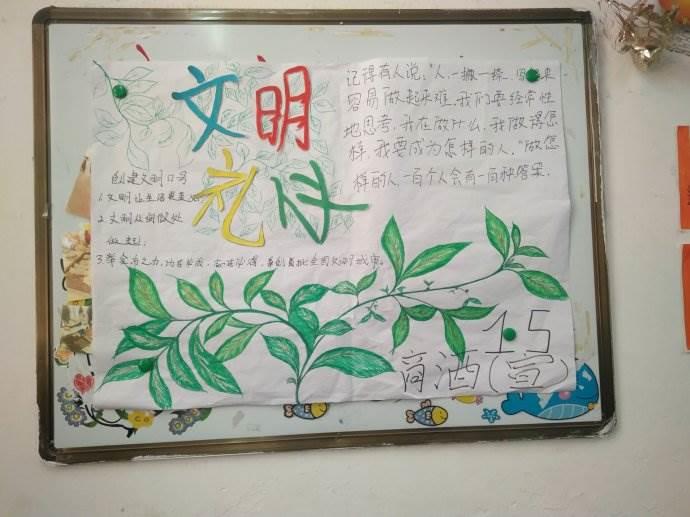 文明
礼仪
记得有人说："人,一撇一捺,写起来
容易做起来难,我们要经常性
地思考,我在做什么,我做得怎
样,我要成为怎样的人."做怎
样的人,一百个人会有一百种答案.
创建文明口号
1.文明让生活更美
2.文明从细微处
做起;
3.举全市之力,
15
商酒(宣)